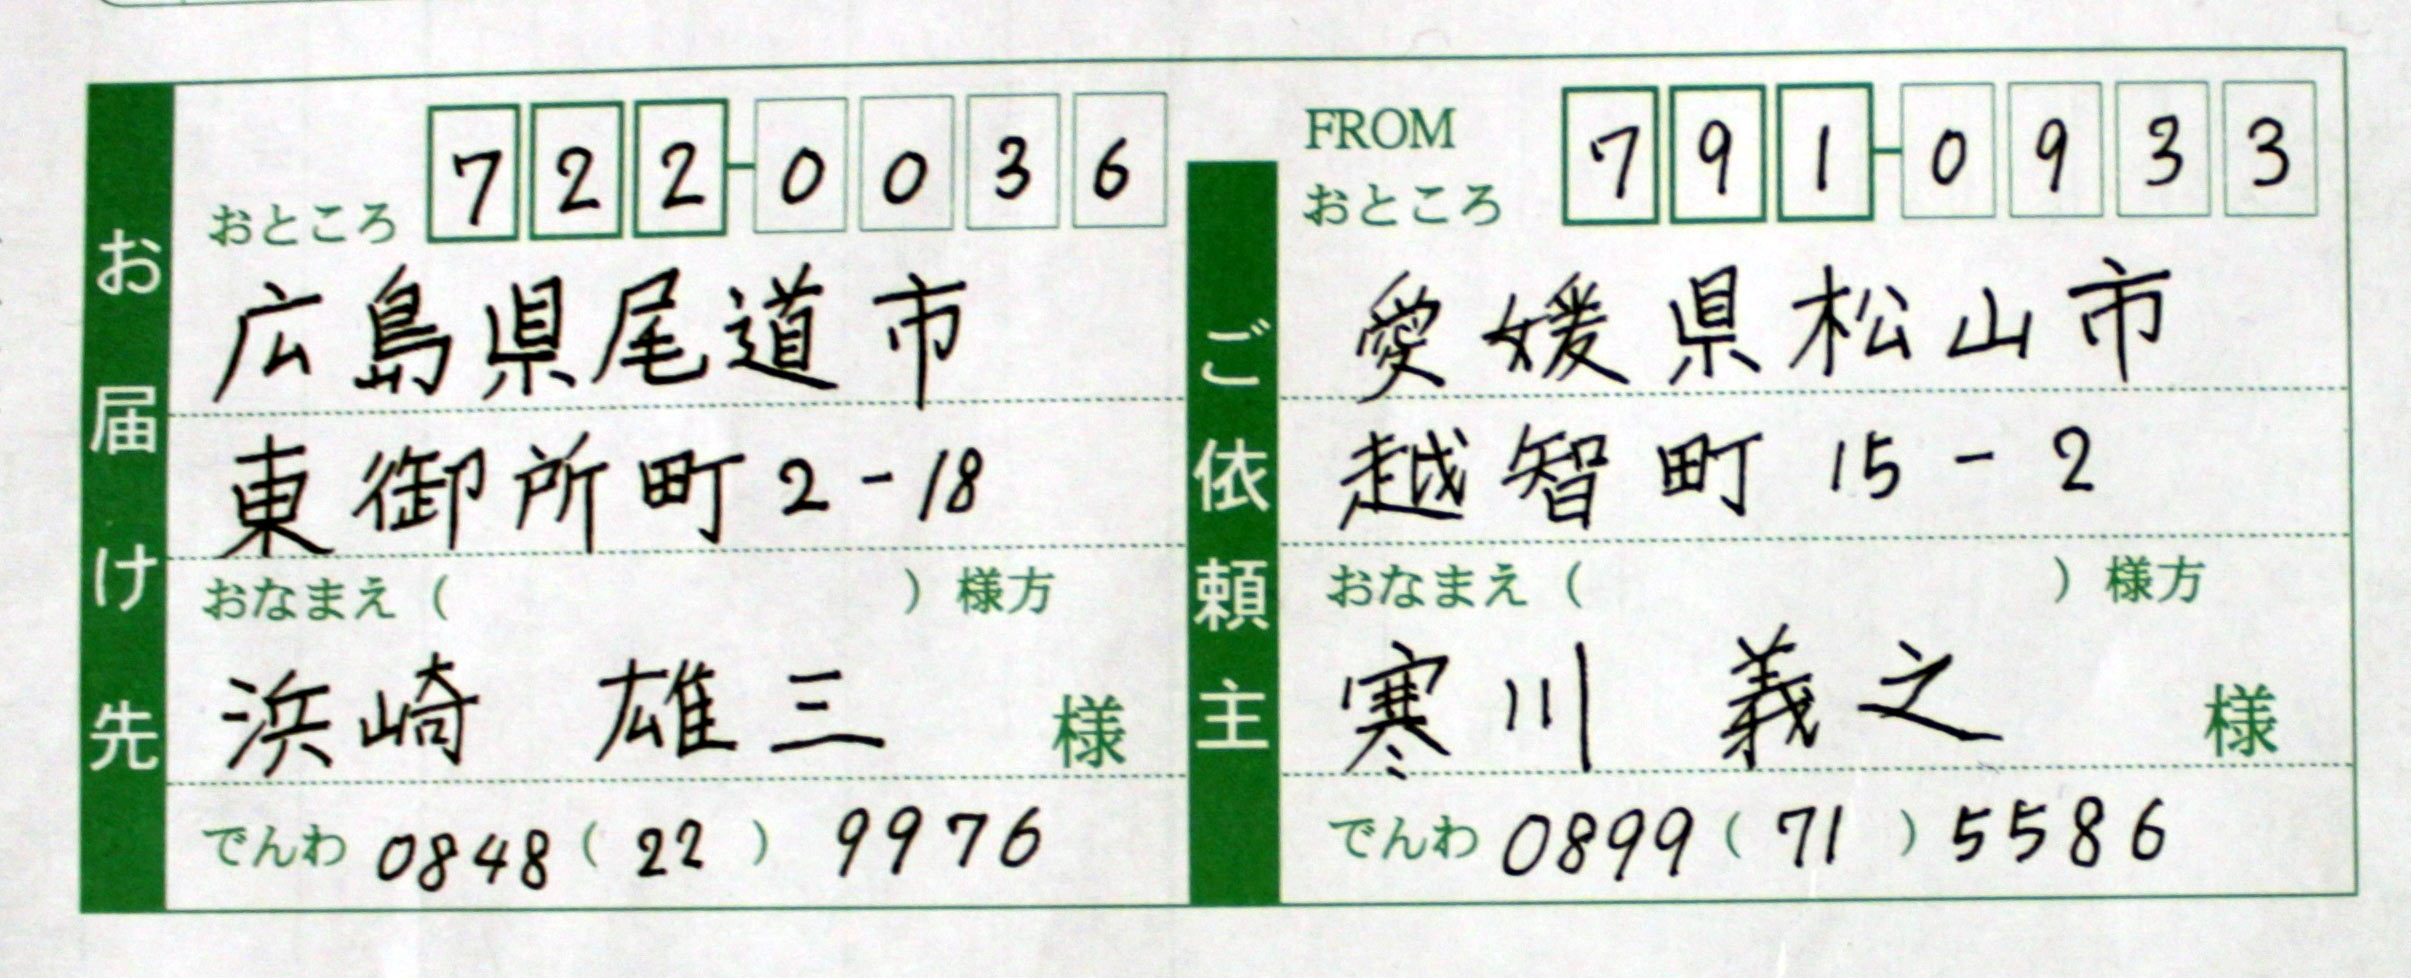 お届け先
722-0036
おところ
広島県尾道市
東御所町2-18
おなまえ（　　　）様方
浜崎 雄三 様
でんわ 0848（22）9976
ご依頼主
FROM
791-0933
おところ
愛媛県松山市
越智町 15-2
おなまえ（　　　）様方
寒川 義之 様
でんわ 0899（71）5586